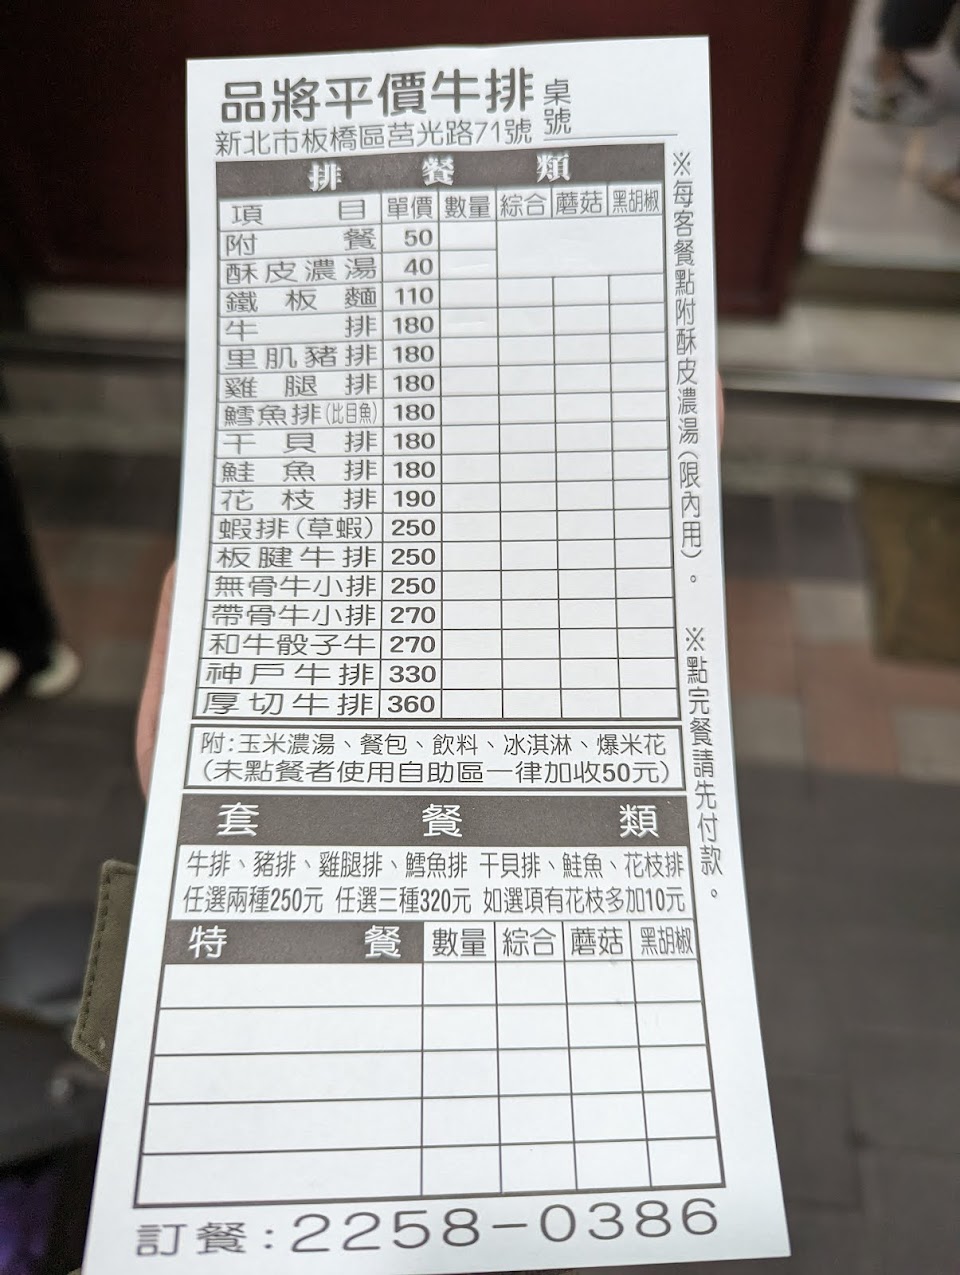 品將平價牛排 桌號
新北市板橋區莒光路71號
排餐類
項目 單價 數量 綜合 蘑菇 黑胡椒
附餐 50
酥皮濃湯 40
鐵板麵 110
牛排 180
里肌豬排 180
雞腿排 180
鱈魚排(比目魚) 180
干貝排 180
鮭魚排 180
花枝排 190
蝦排(草蝦) 250
板腱牛排 250
無骨牛小排 250
帶骨牛小排 270
和牛骰子牛 270
神戶牛排 330
厚切牛排 360
※每客餐點附酥皮濃湯(限內用)。
※點完餐請先付款。
附:玉米濃湯、餐包、飲料、冰淇淋、爆米花
(未點餐者使用自助區一律加收50元)
套餐類
牛排、豬排、雞腿排、鱈魚排 干貝排、鮭魚、花枝排
任選兩種250元 任選三種320元 如選項有花枝多加10元
特餐 數量 綜合 蘑菇 黑胡椒
訂餐:2258-0386